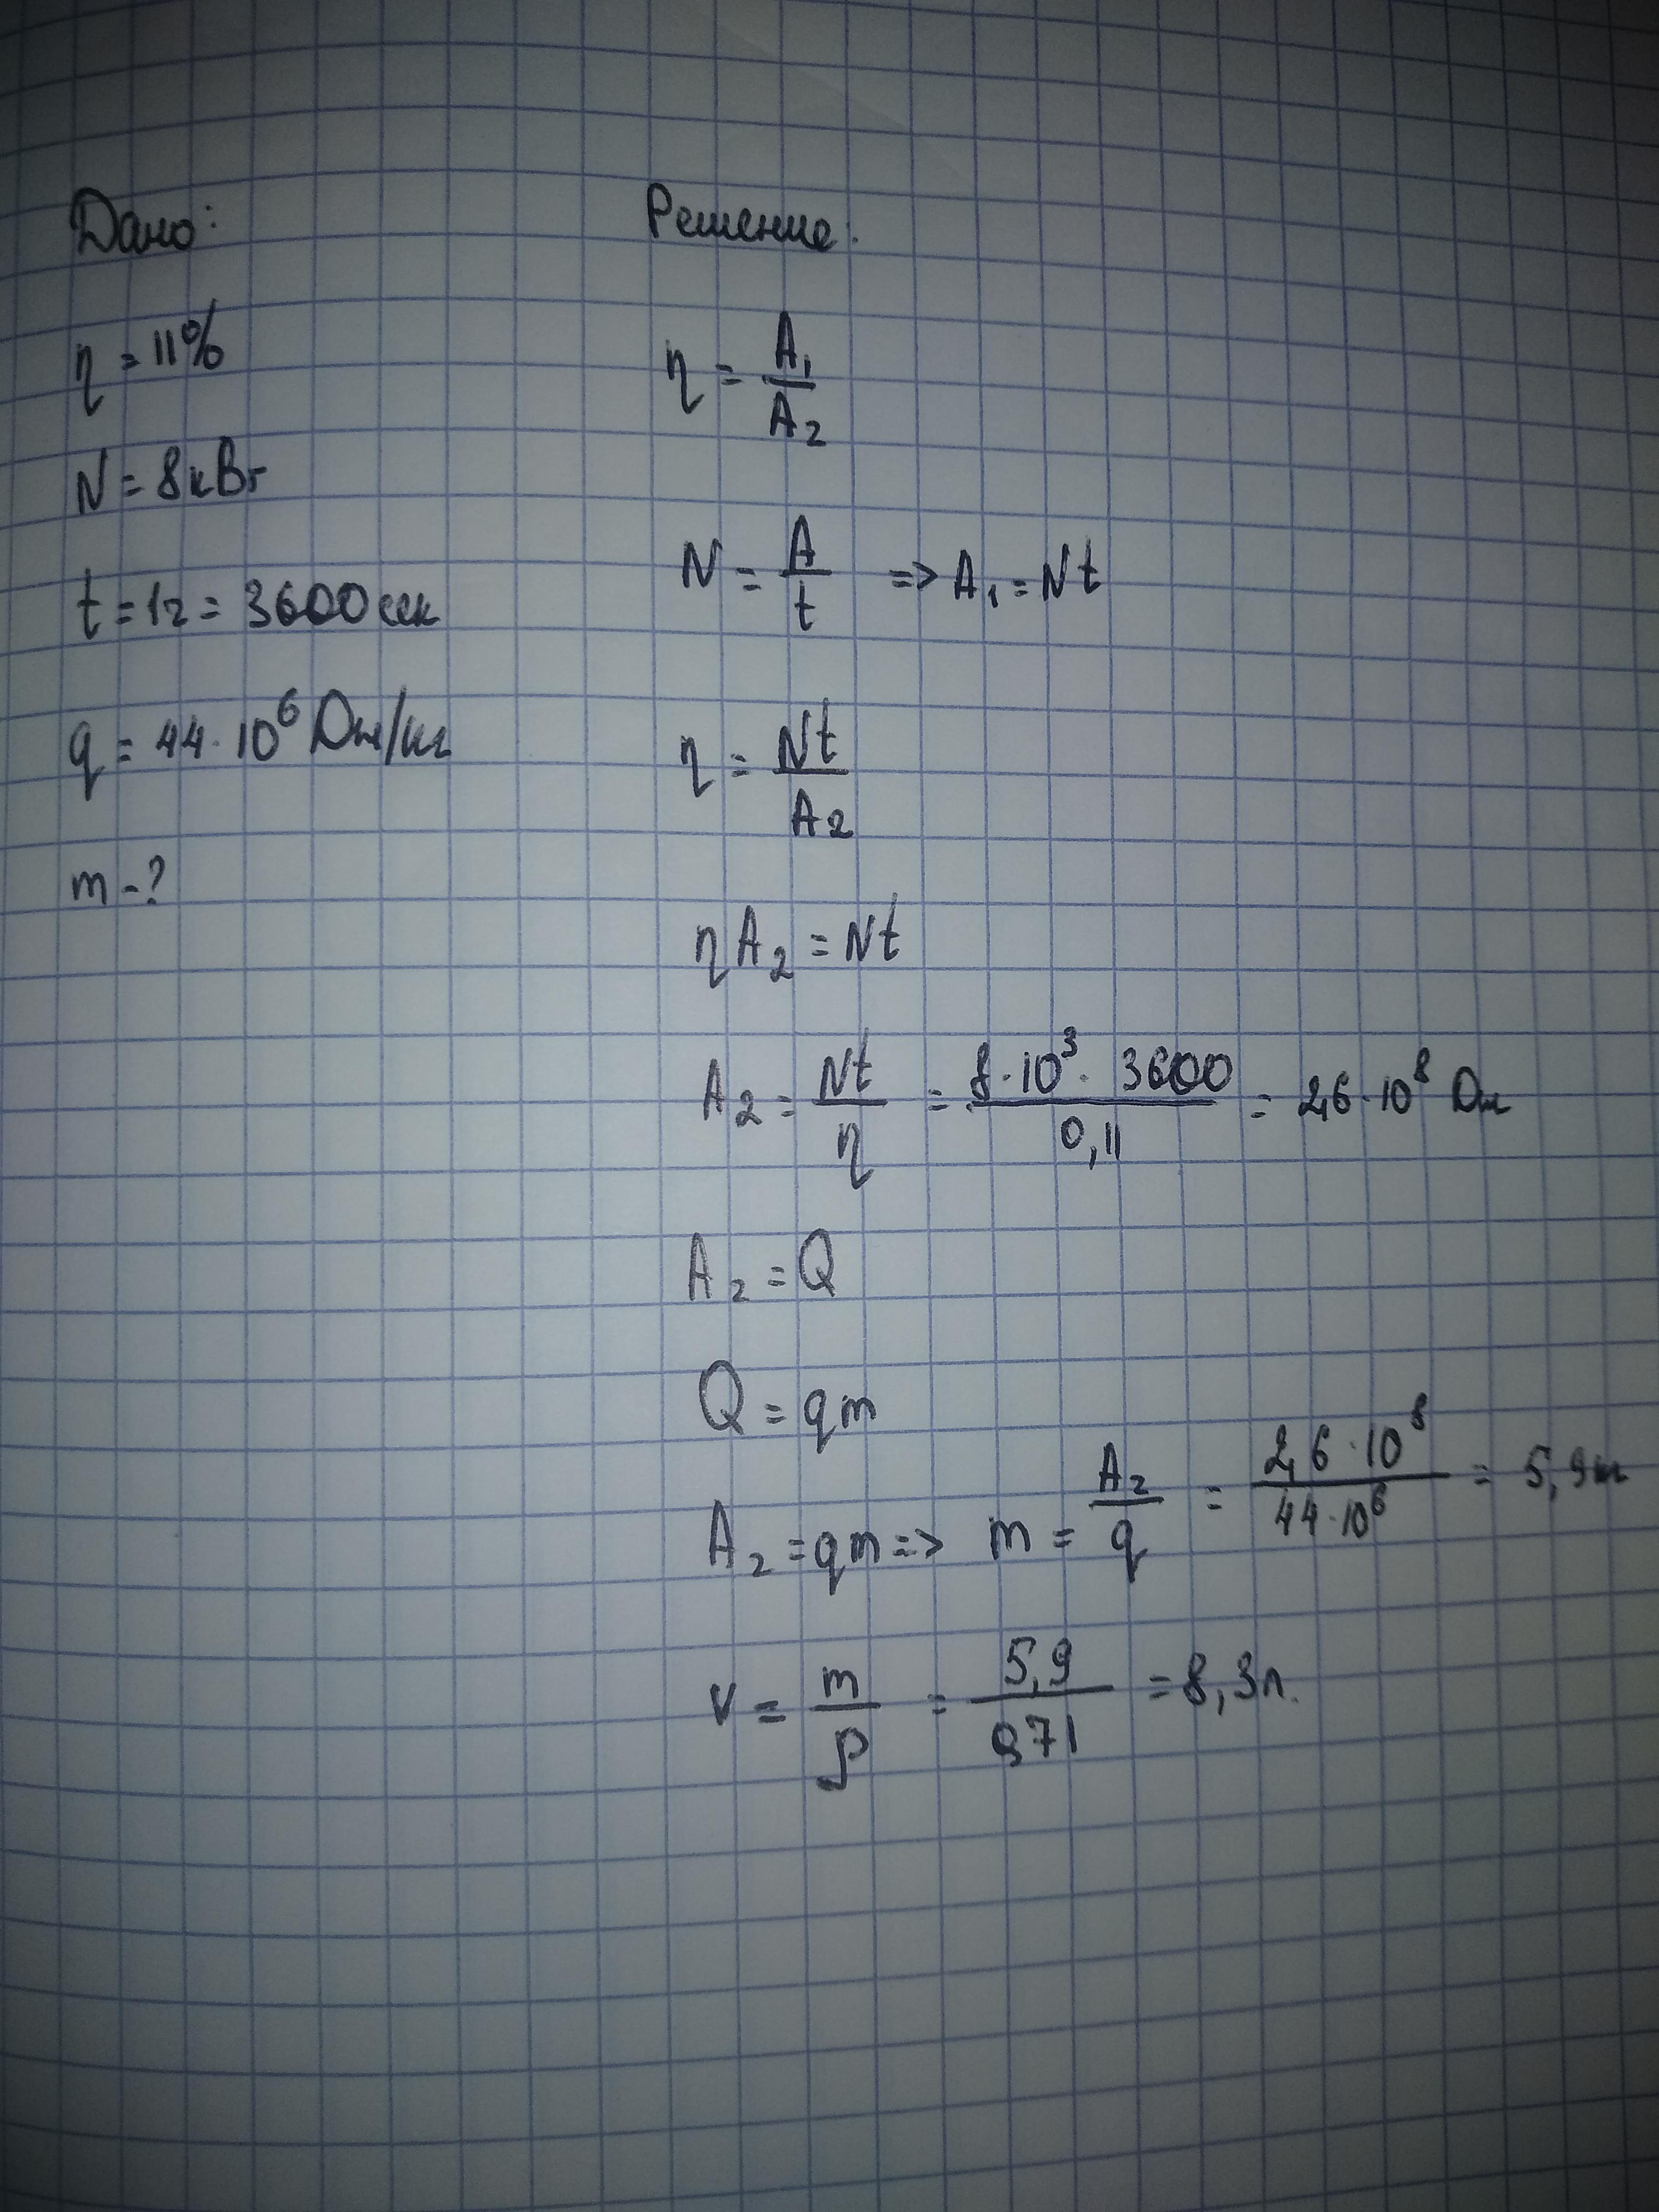 Дано:
η = 11%
N = 8кВт
t = 1г = 3600 сек
q = 44·10⁶ Дж/кг
m - ?
Решение:
η = A₁/A₂
N = A/t => A₁ = Nt
η = Nt/A₂
ηA₂ = Nt
A₂ = Nt/η = 8·10³·3600/0,11 = 2,6·10⁸ Дж
A₂ = Q
Q = qm
A₂ = qm => m = A₂/q = 2,6·10⁸/44·10⁶ = 5,9кг
V = m/ρ = 5,9/0,71 = 8,3л.